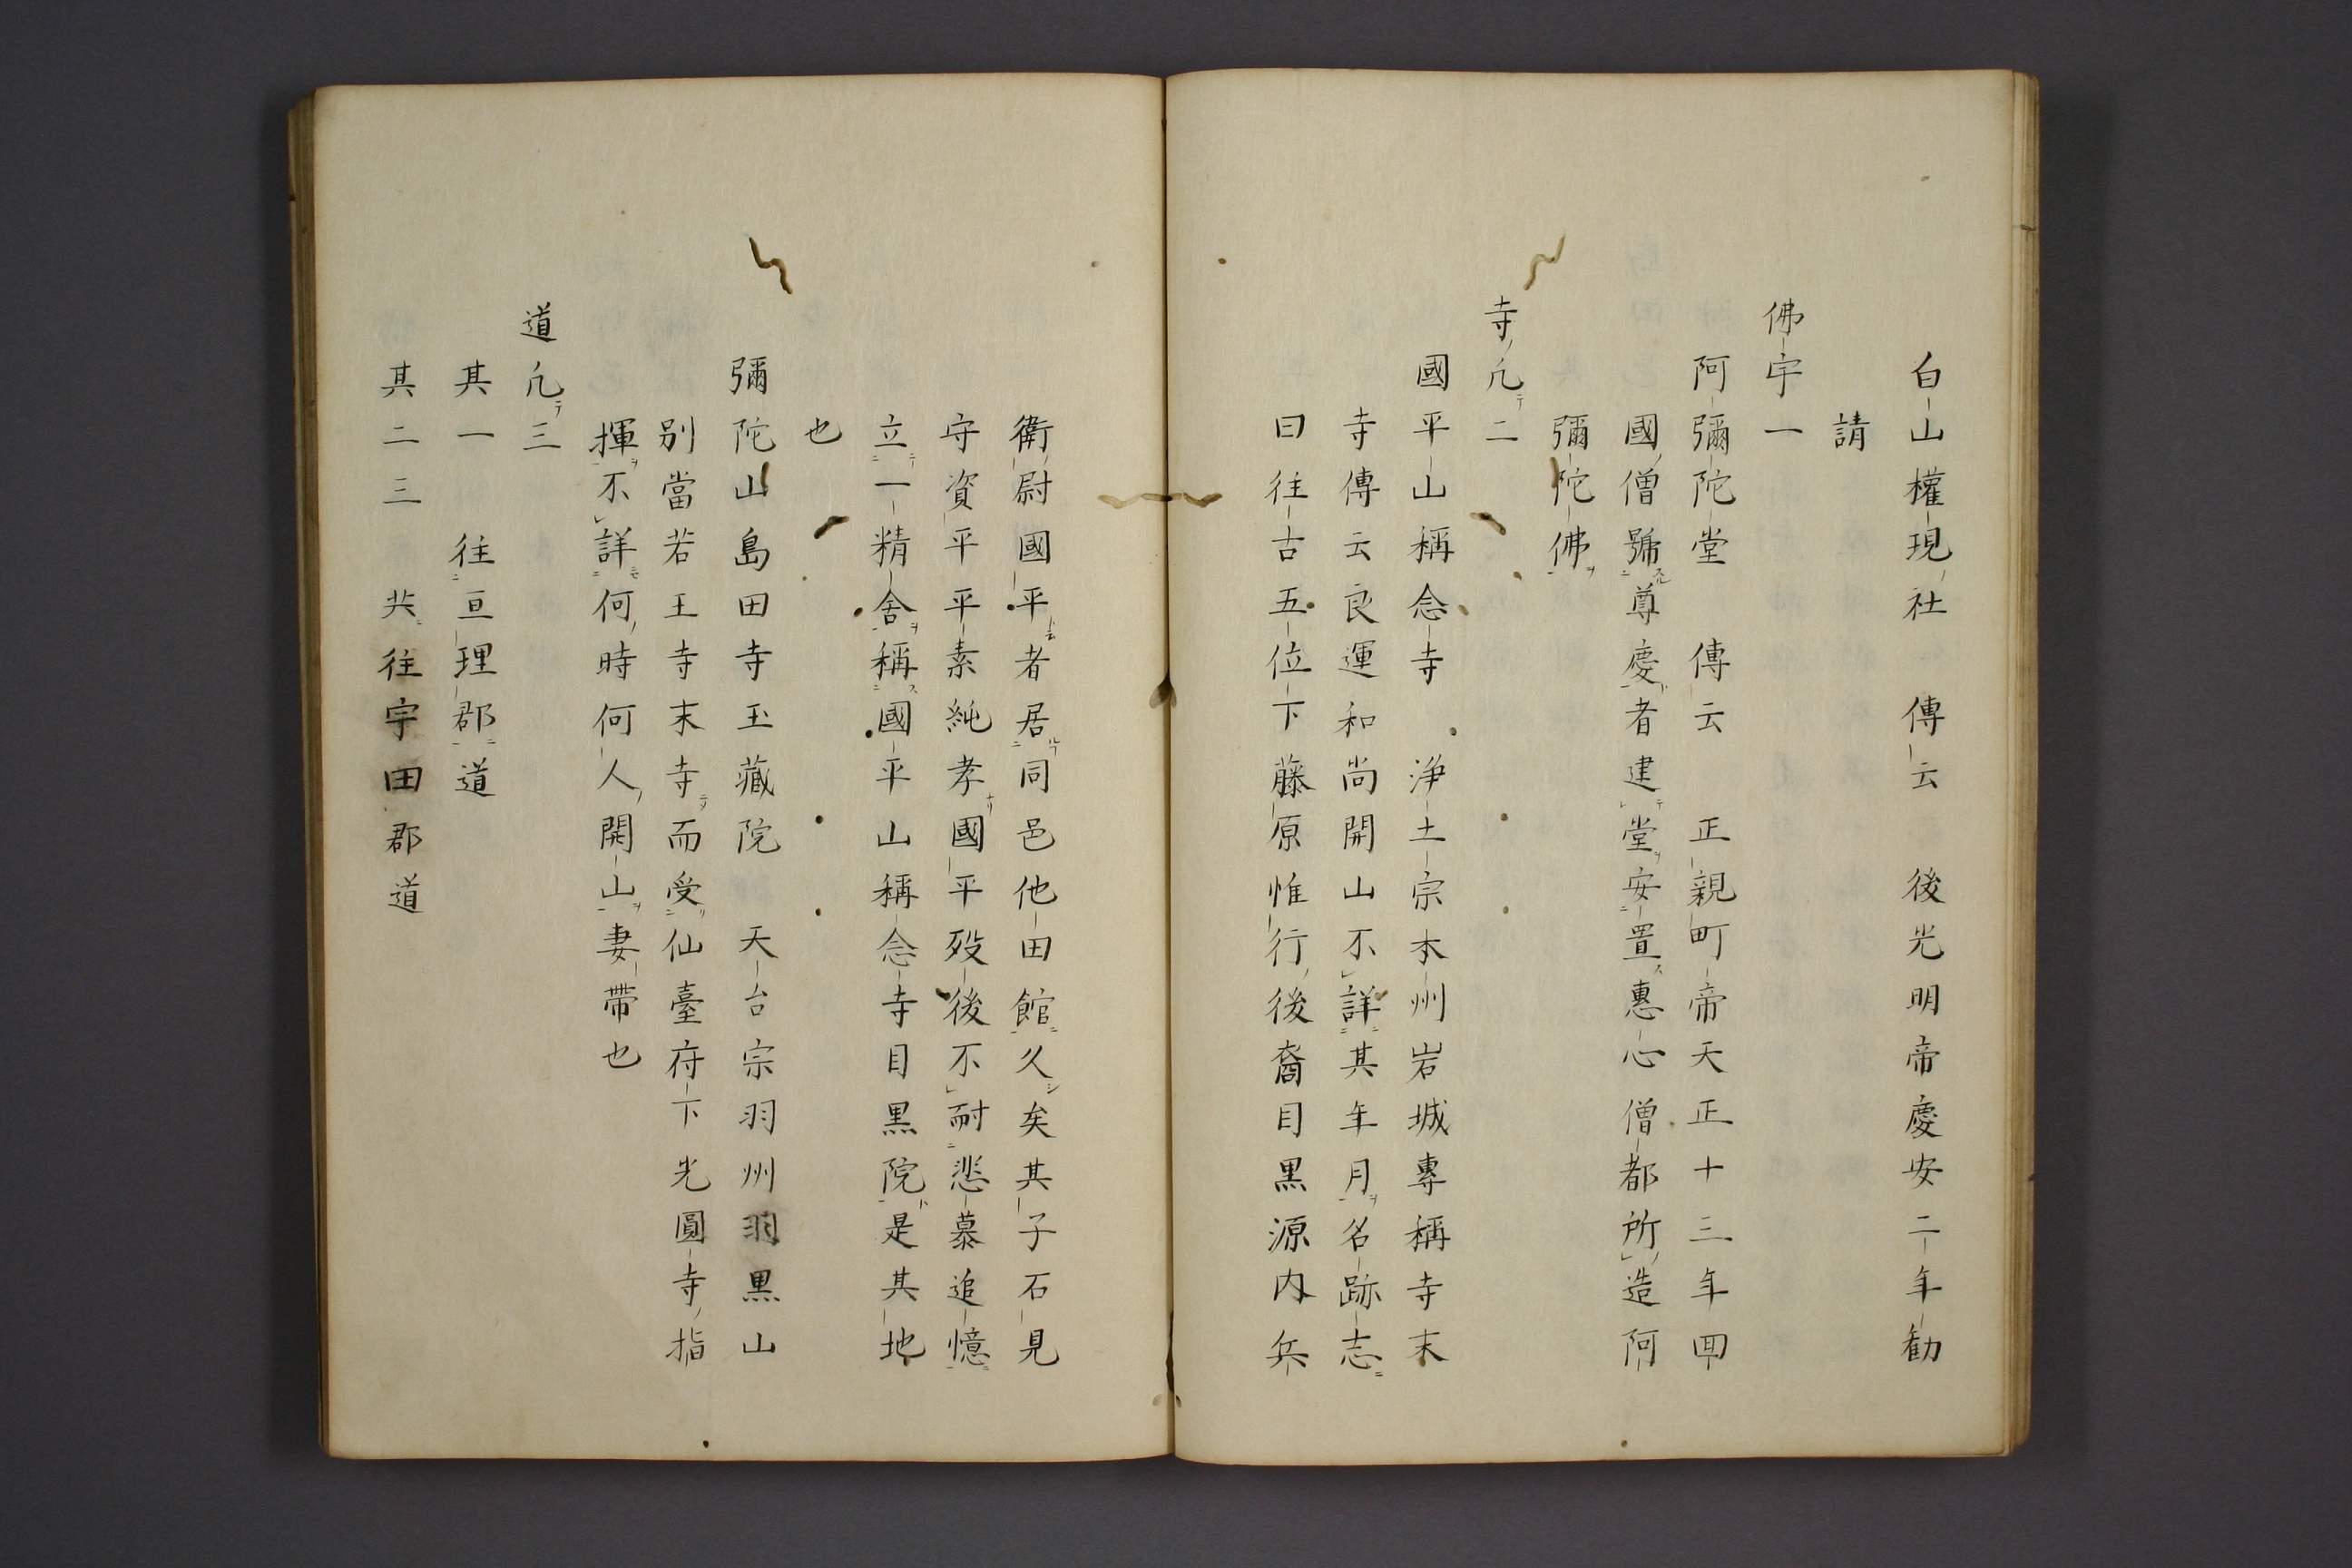 白山權現社　傳云　後光明帝慶安二年勧
請
佛宇一
阿彌陀堂　傳云　正親町帝天正十三年
國僧號尊慶者建堂安置惠心僧都所造阿
彌陀佛
寺凡二
國平山稱念寺　浄土宗本州岩城專稱寺末
寺傳云良運和尚開山不詳其年月名跡志
曰往古五位下藤原惟行後裔目黒源内兵
衛尉國平者居同邑他田館久矣其子石見
守資平平素純孝國平歿後不耐悲慕追憶
立一精舎稱國平山稱念寺目黒院是其地
也
彌陀山島田寺玉藏院　天台宗羽州羽黒山
別當若王寺末寺而受仙臺府下光圓寺指
揮不詳何時何人開山妻帶也
道凡三
其一　往亘理郡道
其二三　共往宇田郡道